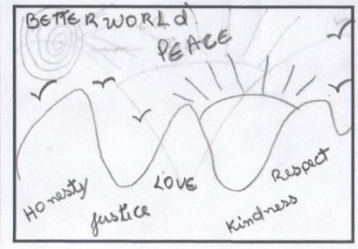 BETTER WORLD
PEACE
Honesty
Justice
LOVE
Kindness
Respect